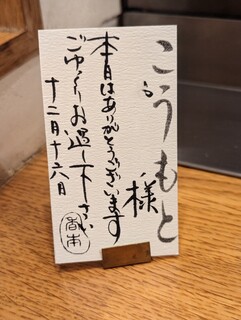 こうもと
様
本日はありがとうございます
ごゆっくりお過し下さい
十二月十六月
香本